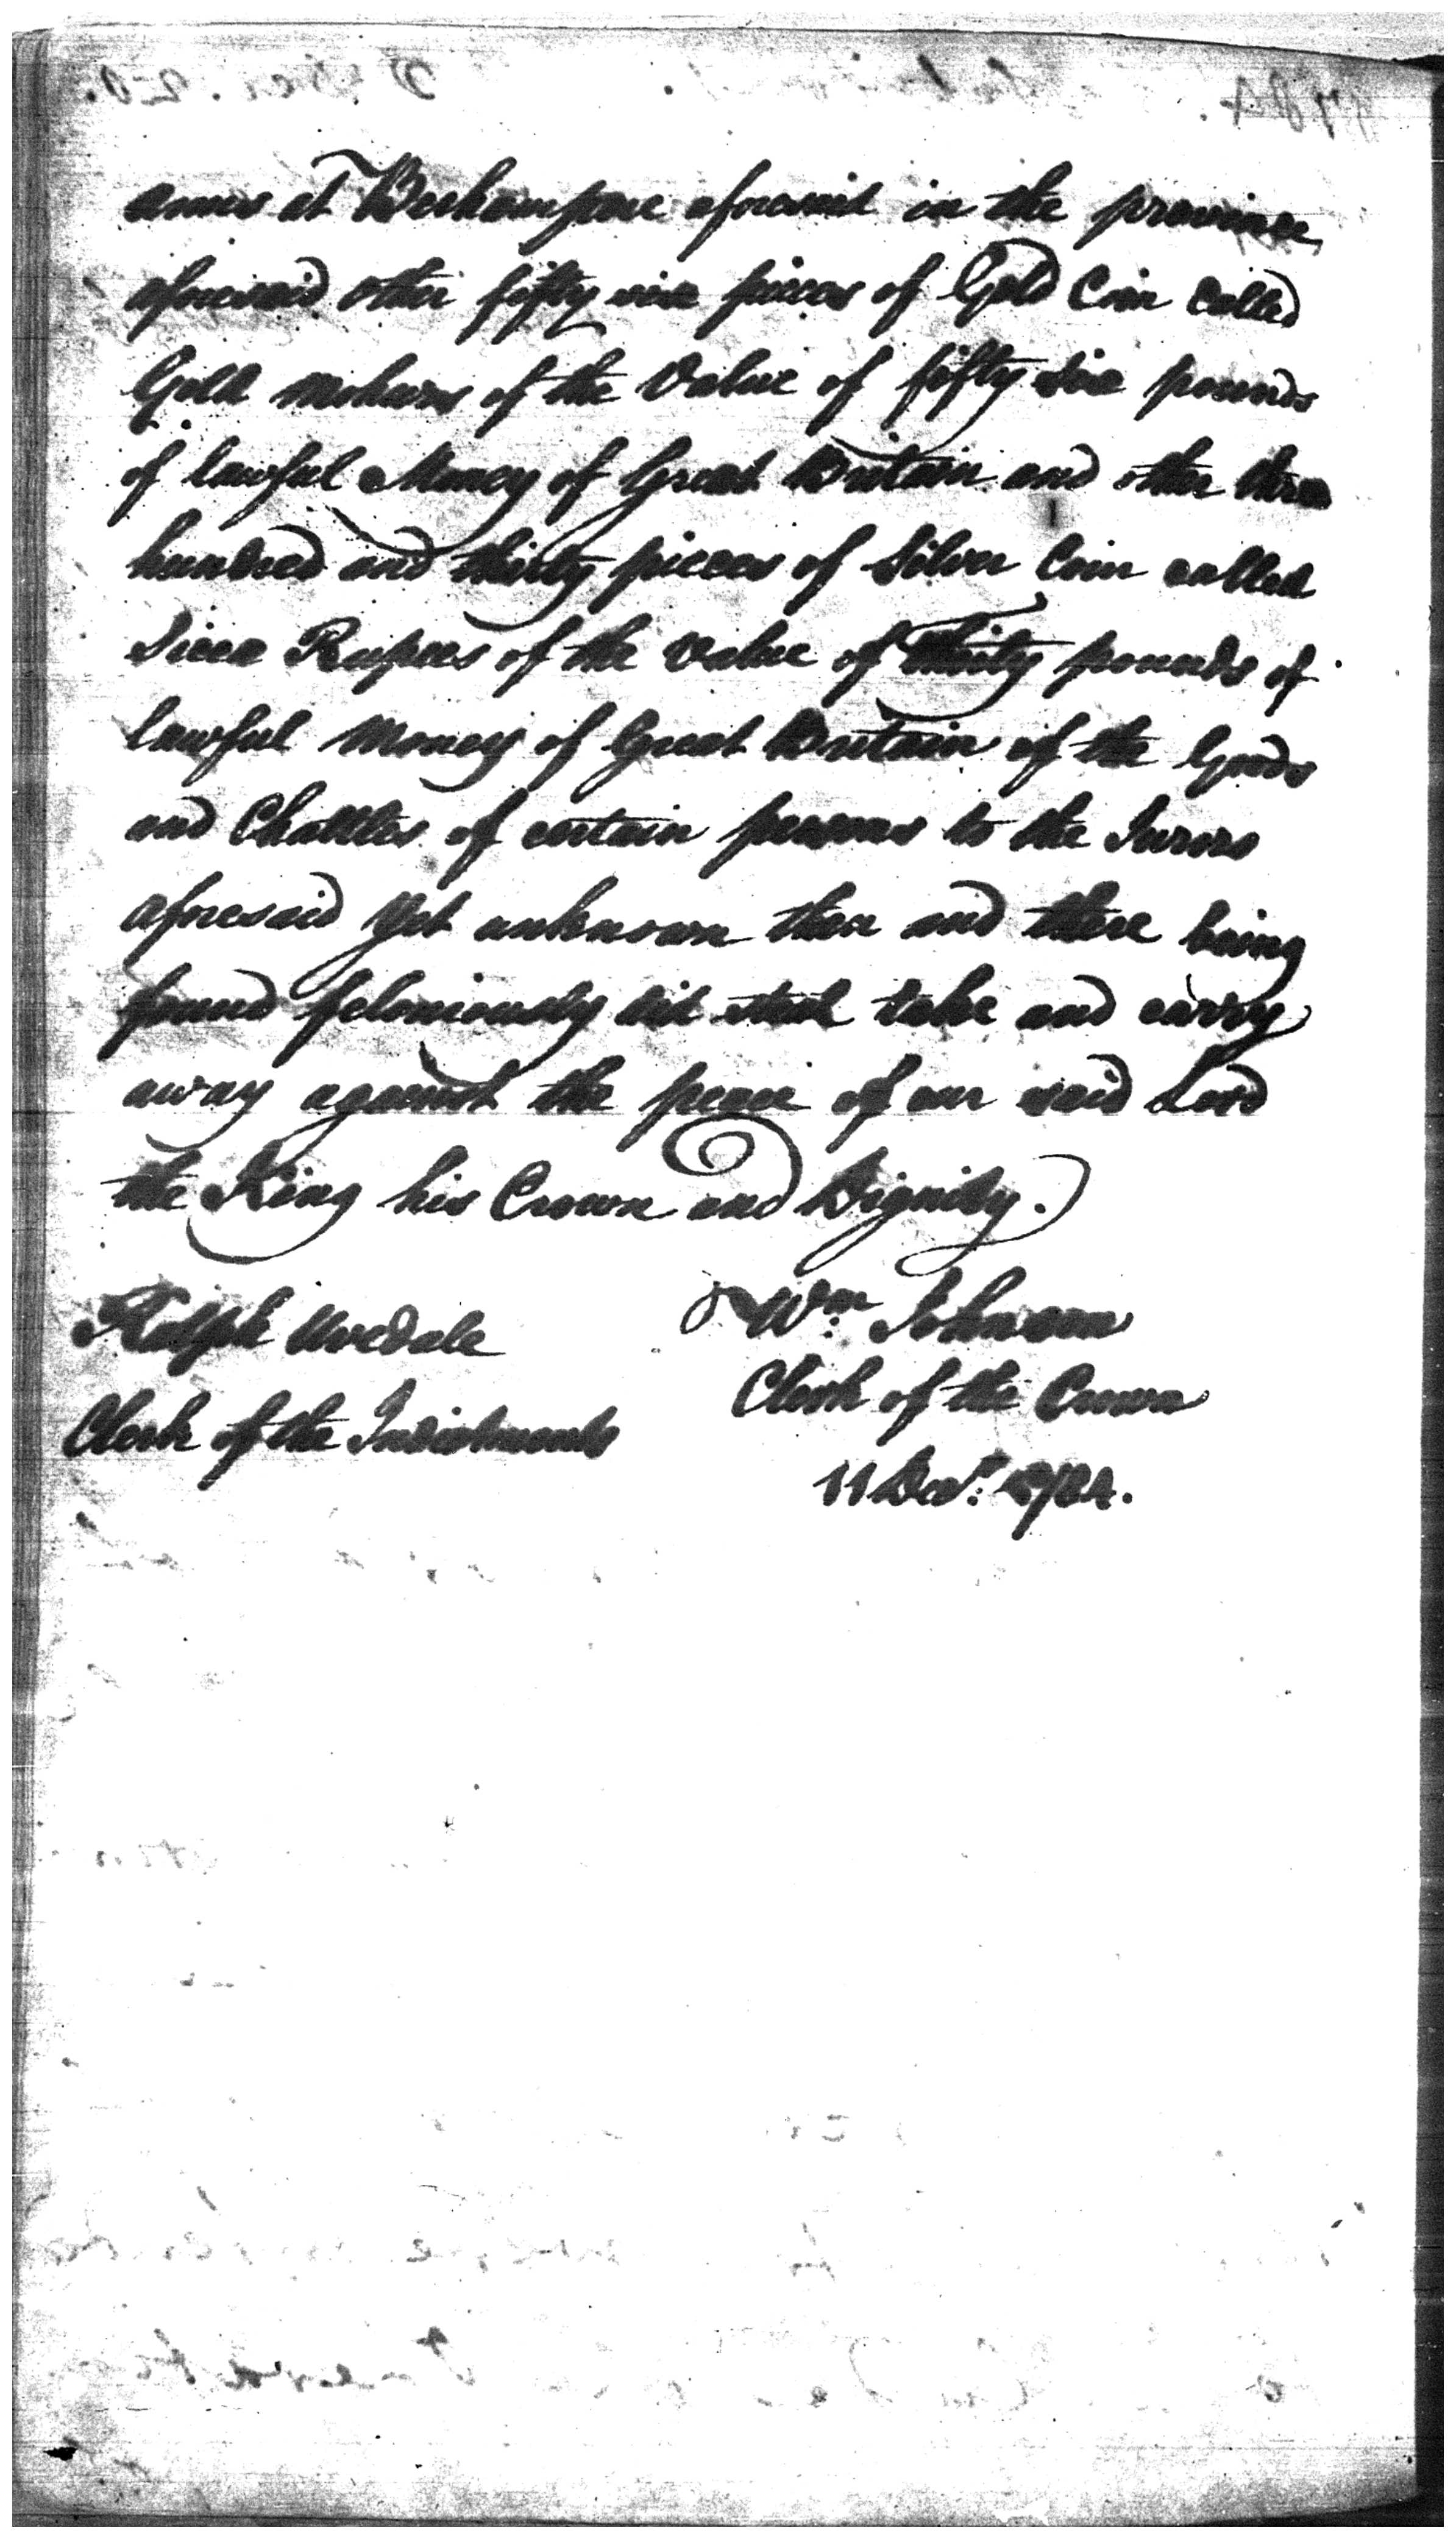 armes at Berhampore aforesaid in the province
aforesaid other fifty nine pieces of Gold Coin called
Gold Mohurs of the Value of fifty six pounds
of lawful Money of Great Britain and other three
hundred and thirty pieces of Silver Coin called
Sicca Rupees of the value of thirty pounds of
lawful Money of Great Britain of the Goods
and Chattles of certain persons to the Jurors
aforesaid yet unknown then and there being
found feloniously did steal take and carry
away against the peace of our said Lord
the King his Crown and Dignity.
Ralph Uvedale
Clerk of the Indictments
Wm. Johnson
Clerk of the Crown
11 Decr. 1784.